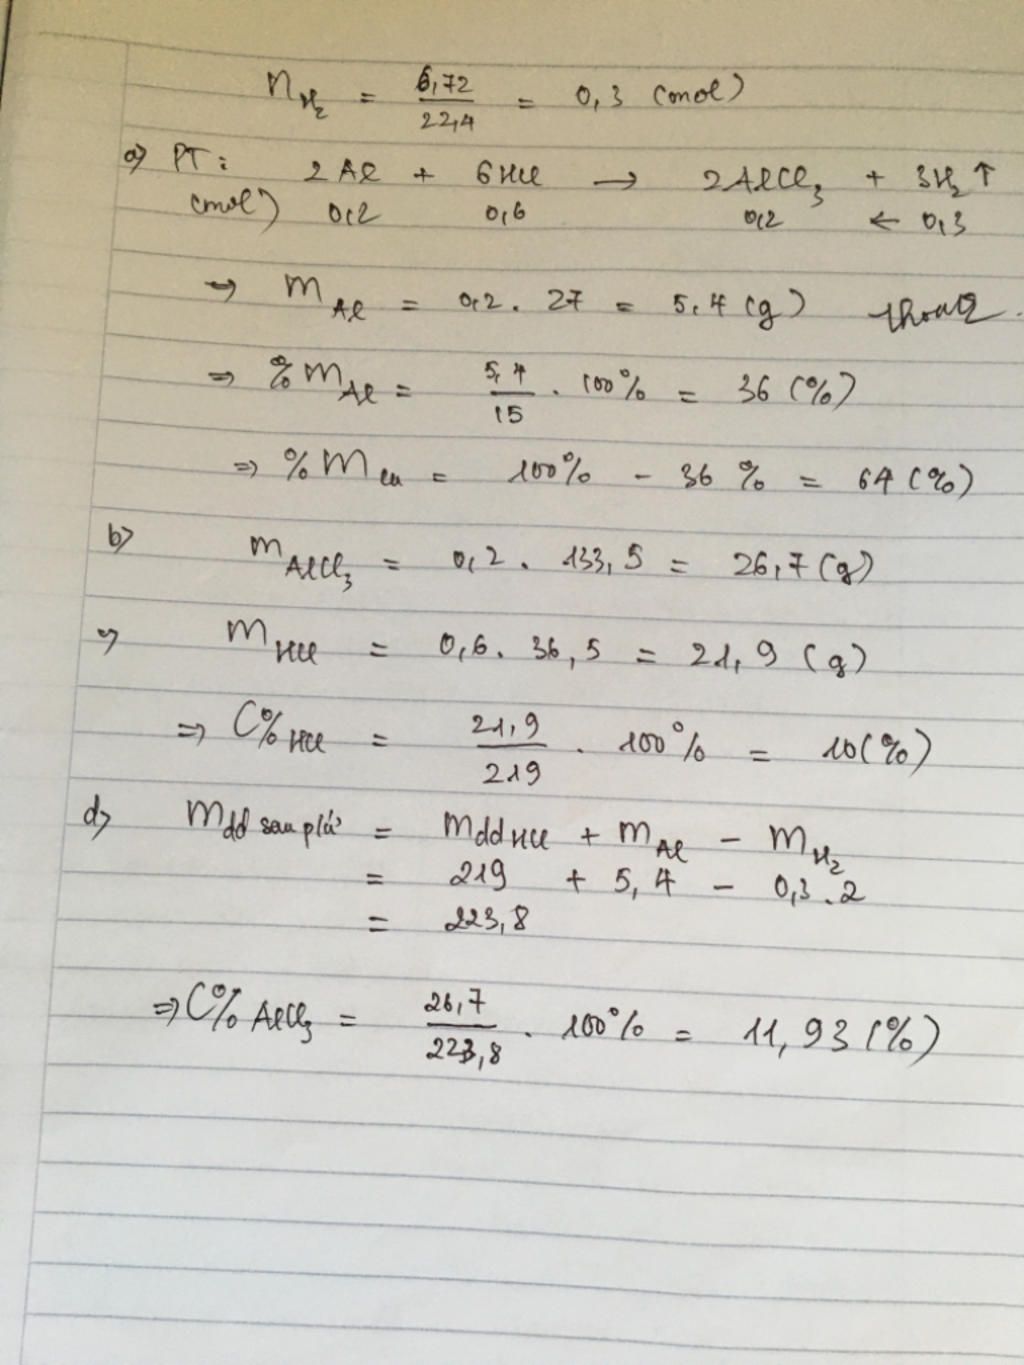 nH₂ = 6,72/22,4 = 0,3 (mol)
a) PT: 2Al + 6HCl → 2AlCl₃ + 3H₂↑
(mol) 0,2 0,6 0,2 ← 0,3
→ mAl = 0,2 . 27 = 5,4 (g)
⇒ %mAl = 5,4/15 . 100% = 36 (%)
⇒ %mCu = 100% - 36 % = 64 (%)
b) mAlCl₃ = 0,2 . 133,5 = 26,7 (g)
c) mHCl = 0,6 . 36,5 = 21,9 (g)
⇒ C%HCl = 21,9/219 . 100% = 10 (%)
d) mdd sau pứ = mddHCl + mAl - mH₂
= 219 + 5,4 - 0,3 . 2
= 223,8
⇒ C% AlCl₃ = 26,7/223,8 . 100% = 11,93 (%)